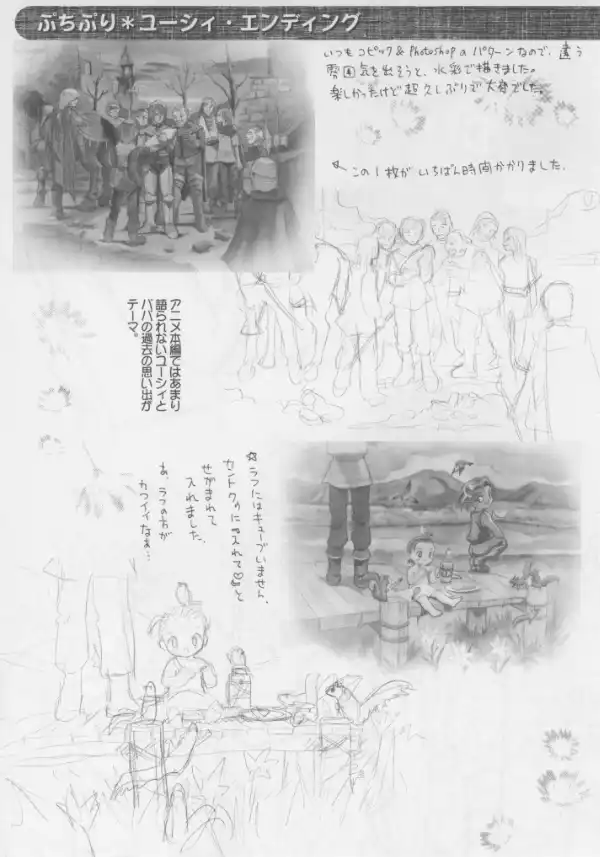 ぷちぷり＊ユーシィ・エンディング
いつもコピック&Photoshopのパターンなので、違う
雰囲気を出そうと、水彩で描きました。
楽しかったけど超久しぶりで大変でした。
この1枚がいちばん時間かかりました。
アニメ本編ではあまり
語られないユーシィと
パパの過去の思い出が
テーマ。
☆ラフにはキューブいません。
カントクに「入れて♡」と
せがまれて
入れました。
あ、ラフの方が
カワイイなぁ…